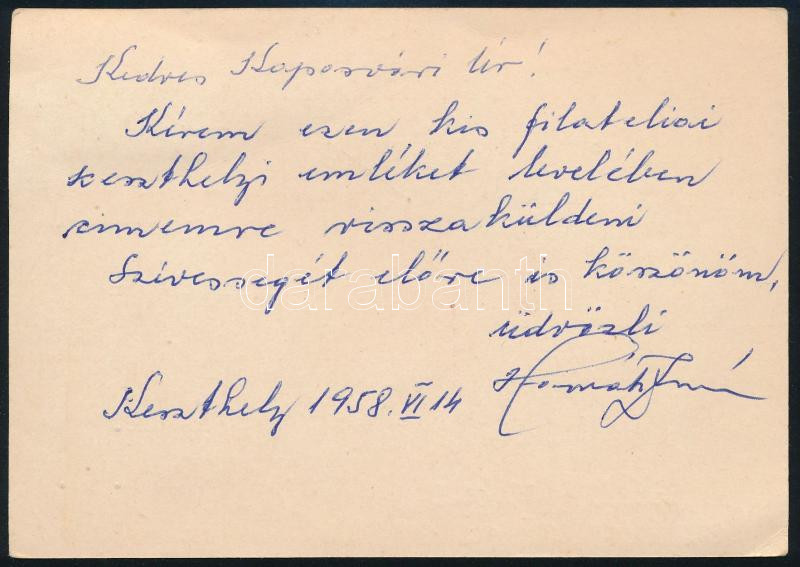 Kedves Kaposvári Úr!
Kérem ezen kis filateliai
keszthelyi emléket levelében
cimemre visszaküldeni
Szívességét előre is köszönöm,
üdvözli
Keszthely 1958. VI 14
darabanth